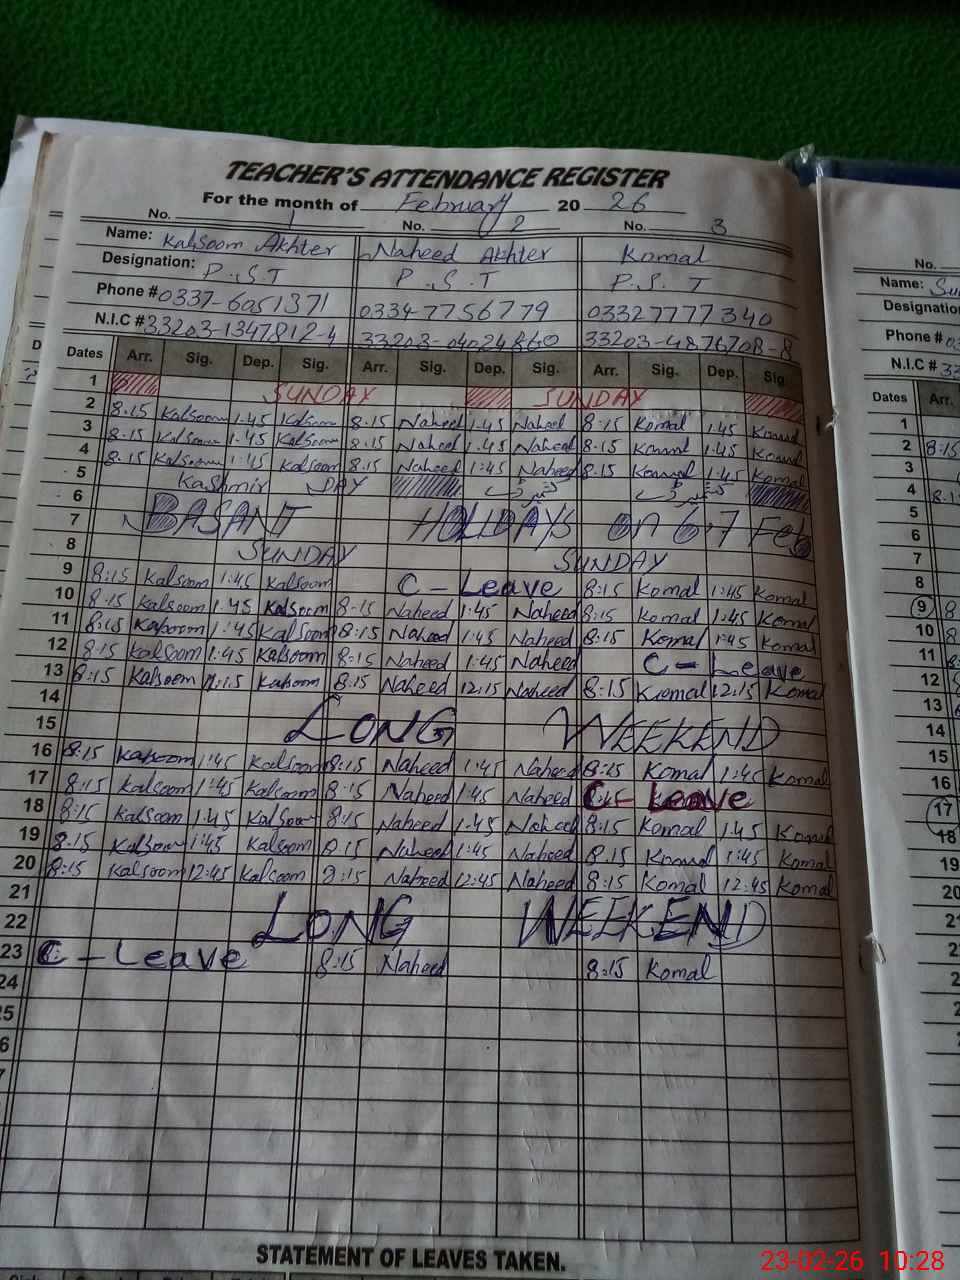 TEACHER'S ATTENDANCE REGISTER
For the month of February 20 26
No. 1 No. 2 No. 3
Name: Kalsoom Akhter Naheed Akhter Komal
Designation: P.S.T P.S.T P.S.T
Phone # 0337-6051371 0334-7756779 03327777340
N.I.C # 33203-1347812-4 33203-0402486-0 33203-4876708-8
Dates Arr. Sig. Dep. Sig. Arr. Sig. Dep. Sig. Arr. Sig. Dep. Sig.
1 SUNDAY SUNDAY
2 8:15 Kalsoom 1:45 Kalsoom 8:15 Naheed 1:45 Naheed 8:15 Komal 1:45 Komal
3 8:15 Kalsoom 1:45 Kalsoom 8:15 Naheed 1:45 Naheed 8:15 Komal 1:45 Komal
4 8:15 Kalsoom 1:45 Kalsoom 8:15 Naheed 1:45 Naheed 8:15 Komal 1:45 Komal
5 Kashmir DAY
6
7 BASANT HOLIDAYS on 6,7 Feb
8 SUNDAY SUNDAY
9 8:15 Kalsoom 1:45 Kalsoom C-Leave 8:15 Komal 1:45 Komal
10 8:15 Kalsoom 1:45 Kalsoom 8:15 Naheed 1:45 Naheed 8:15 Komal 1:45 Komal
11 8:15 Kalsoom 1:45 Kalsoom 8:15 Naheed 1:45 Naheed 8:15 Komal 1:45 Komal
12 8:15 Kalsoom 1:45 Kalsoom 8:15 Naheed 1:45 Naheed C-Leave
13 8:15 Kalsoom Kalsoom 8:15 Naheed 12:15 Naheed 8:15 Komal 12:15 Komal
14
15 LONG WEEKEND
16 8:15 Kalsoom 1:45 Kalsoom 8:15 Naheed 1:45 Naheed 8:15 Komal 1:45 Komal
17 8:15 Kalsoom 1:45 Kalsoom 8:15 Naheed 1:45 Naheed C-Leave
18 8:15 Kalsoom 1:45 Kalsoom 8:15 Naheed 1:45 Naheed 8:15 Komal 1:45 Komal
19 8:15 Kalsoom 1:45 Kalsoom 8:15 Naheed 1:45 Naheed 8:15 Komal 1:45 Komal
20 8:15 Kalsoom 12:45 Kalsoom 8:15 Naheed 12:45 Naheed 8:15 Komal 12:45 Komal
21
22 LONG WEEKEND
23 C-Leave 8:15 Naheed 8:15 Komal
24
25
STATEMENT OF LEAVES TAKEN.
No.
Name:
Designation
Phone #
N.I.C #
Dates Arr.
1
2 8:15
3
4
5
6
7
8
9
10
11
12
13
14
15
16
17
18
19
20
23-02-26 10:28